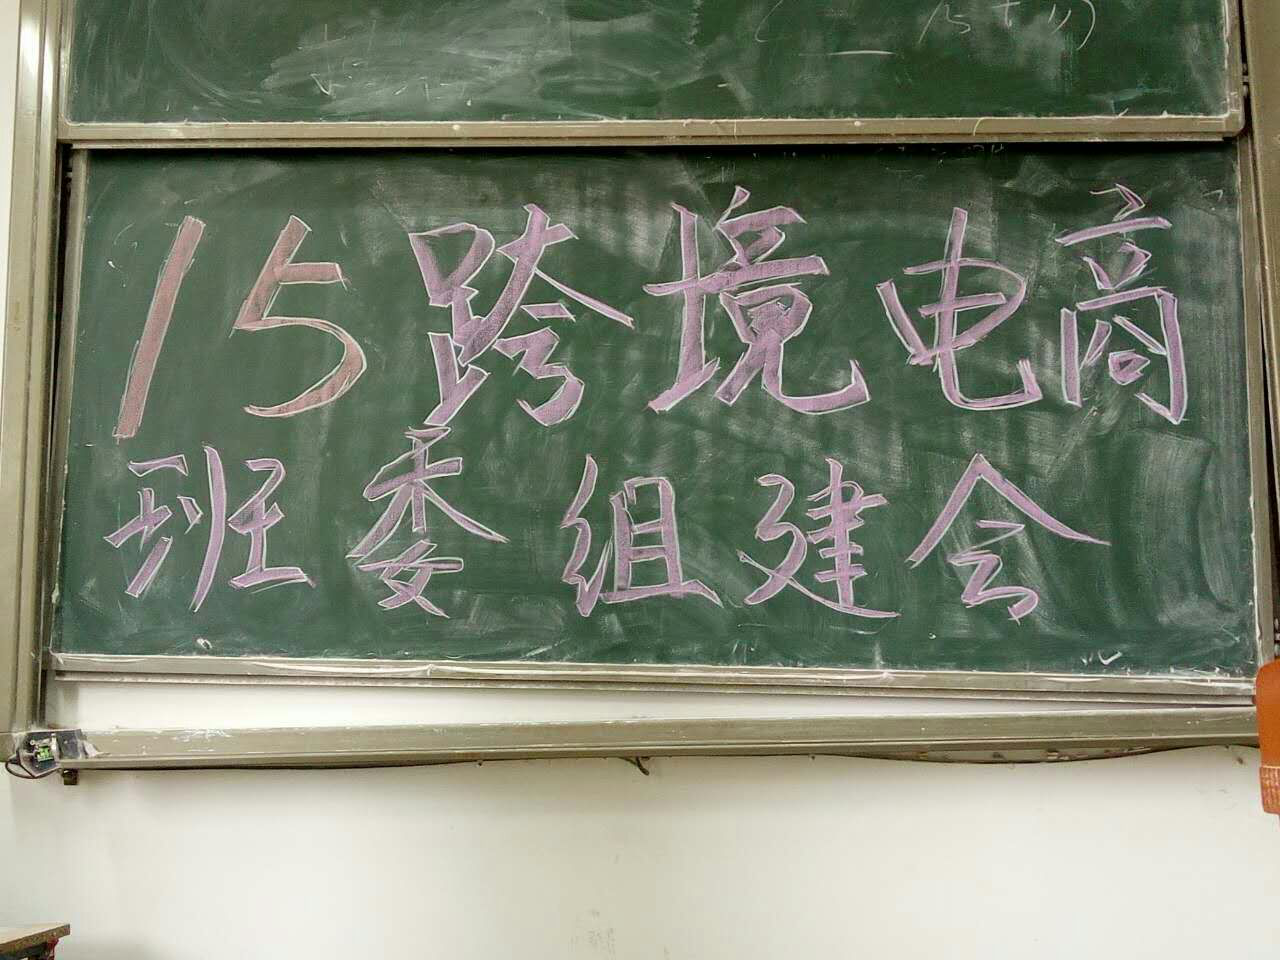 15跨境电商
班委组建会